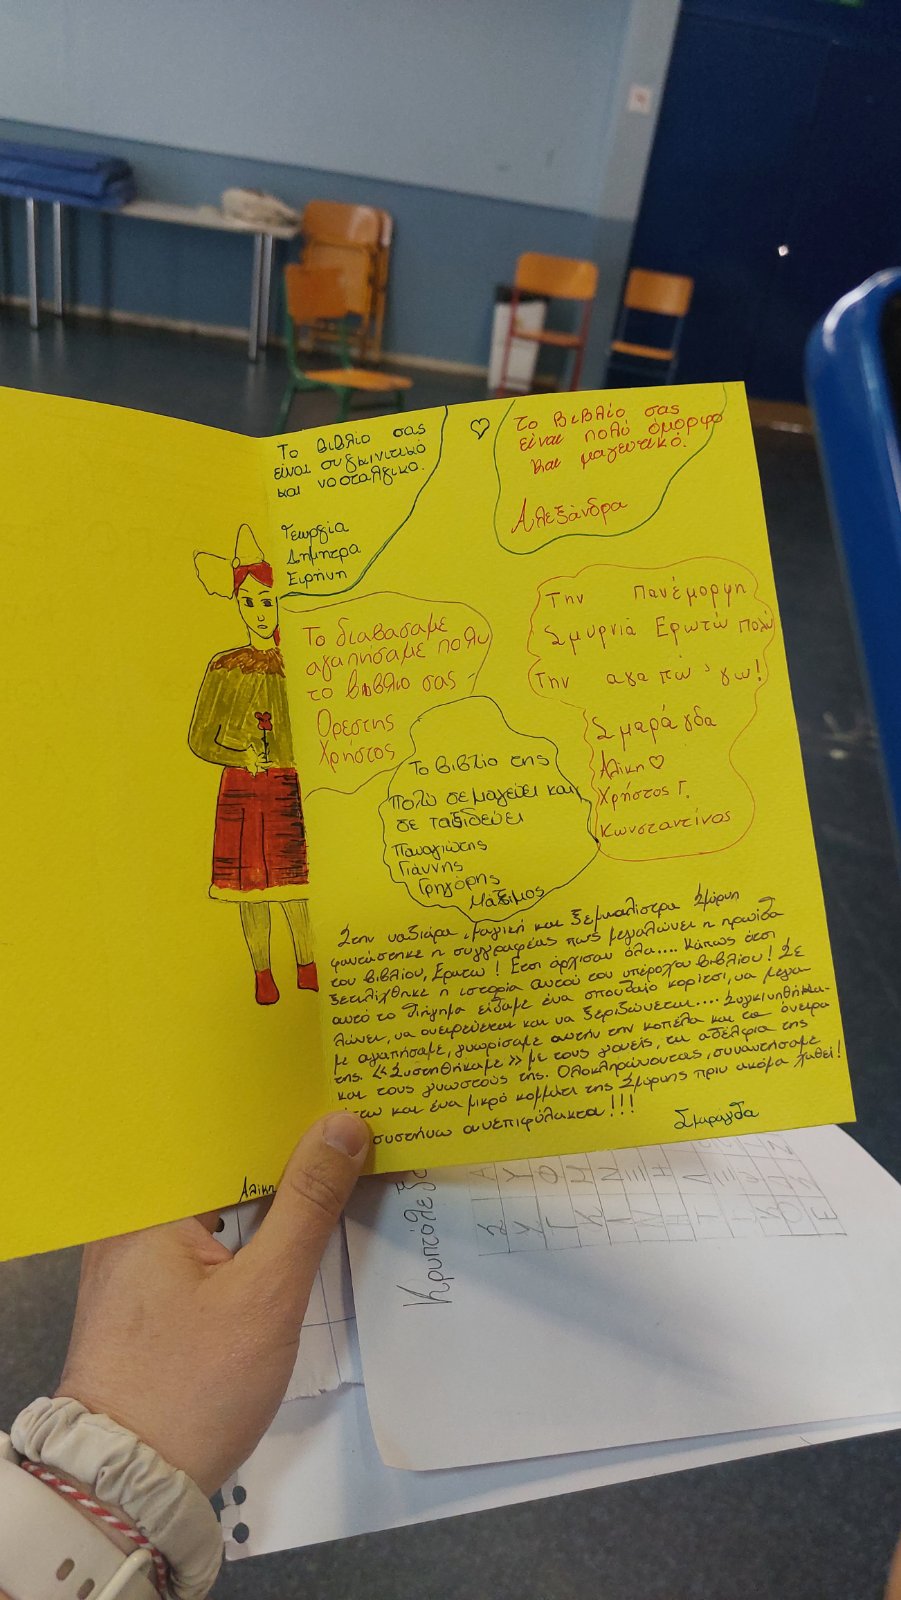 Το βιβλίο σας
είναι συγκινιτικό
και νοσταλγικο.
Γεωργία
Δημητρα
Ειρήνη
το βιβλίο σας
είναι πολύ όμορφο
και μαγευτικό.
Αλεξάνδρα
Το διαβασαμε
αγαπήσαμε πολυ
το βιβλιο σας
Ορεστης
Χρήστος
Την Πανέμορφη
Σμυρνιά Ερωτώ πολύ
την αγαπώ 'γω!
Σμαράγδα
Αλικη
Χρήστος Γ.
Κωνσταντίνος
Το βιβλίο της
πολύ σε μαγεύει και
σε ταξιδεύει
Παναγιώτης
Γιάννης
Γρηγόρης
Μάξιμος
Στην ναζιάρα, μαγική και ξεμυαλίστρα Σμύρνη
φαντάστηκε η συγγραφέας πως μεγαλώνει η ηρωίδα
του βιβλίου, Ερατώ! Ετσι άρχισαν όλα.... Κάπως έτσι
ξετυλίχθηκε η ιστορία αυτού του υπέροχου βιβλίου! Σε
αυτό το διήγημα είδαμε ένα σπουδαίο κορίτσι, να μεγα-
λώνει, να ονειρεύεται και να ξεριζώνεται.... Συγκινηθήκα-
με αγαπήσαμε, γνωρίσαμε αυτήν την κοπέλα και τα όνειρα
της. «Συστηθήκαμε» με τους γονείς, τα αδέλφια της
και τους γνωστούς της. Ολοκληρώνοντας, συναντήσαμε
και ένα μικρό κομμάτι της Σμύρνης πριν ακόμα χαθεί!
συστήνω ανεπιφύλακτα!!!
Σμαραγδα
Αλίκη
Κρυπτόλεξο